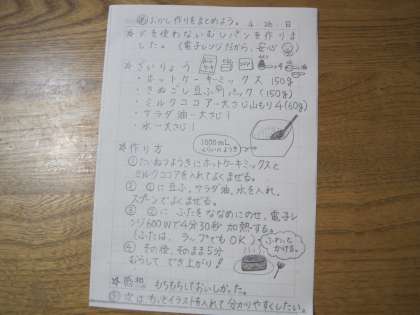 おかし作りをまとめよう。 4 26 日
火を使わないむしパンを作りま
した。(電子レンジだから、安心)
ざいりょう
・ホットケーキミックス 150g
・きぬごし豆ふ1パック(150g)
・ミルクココアー大さじ山もり4(60g)
・サラダ油ー大さじ1
・水ー大さじ1
1000mL
くらいのようき
作り方
① たいねつようきにホットケーキミックスと
ミルクココアを入れてよくまぜる。
② ①に豆ふ、サラダ油、水を入れ、
スプーンでよくまぜる。
③ ②に ふたをななめにのせ、電子レ
ンジ600Wで4分30秒 加熱する。
(ふたは、ラップでもOK)
ふわっと
かける。
④ その後、そのまま5分
むらして でき上がり!
感想 もちもちしておいしかった。
次は もっとイラストを入れて 分かりやすくしたい。